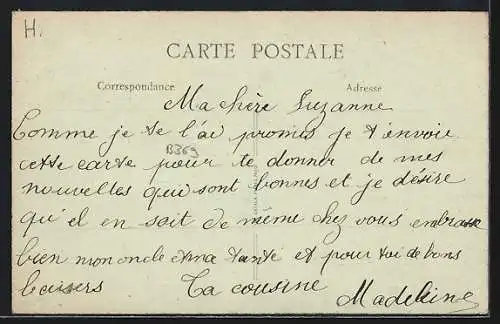 H.
CARTE POSTALE
Correspondance
Adresse
Ma chère Suzanne
Comme je te l'ai promis je t'envoie
B369
cette carte pour te donner de mes
nouvelles qui sont bonnes et je désire
qu'el en soit de meme chez vous embrasse
bien mon oncle et ma tante et pour toi de bons
baisers Ta cousine Madeleine